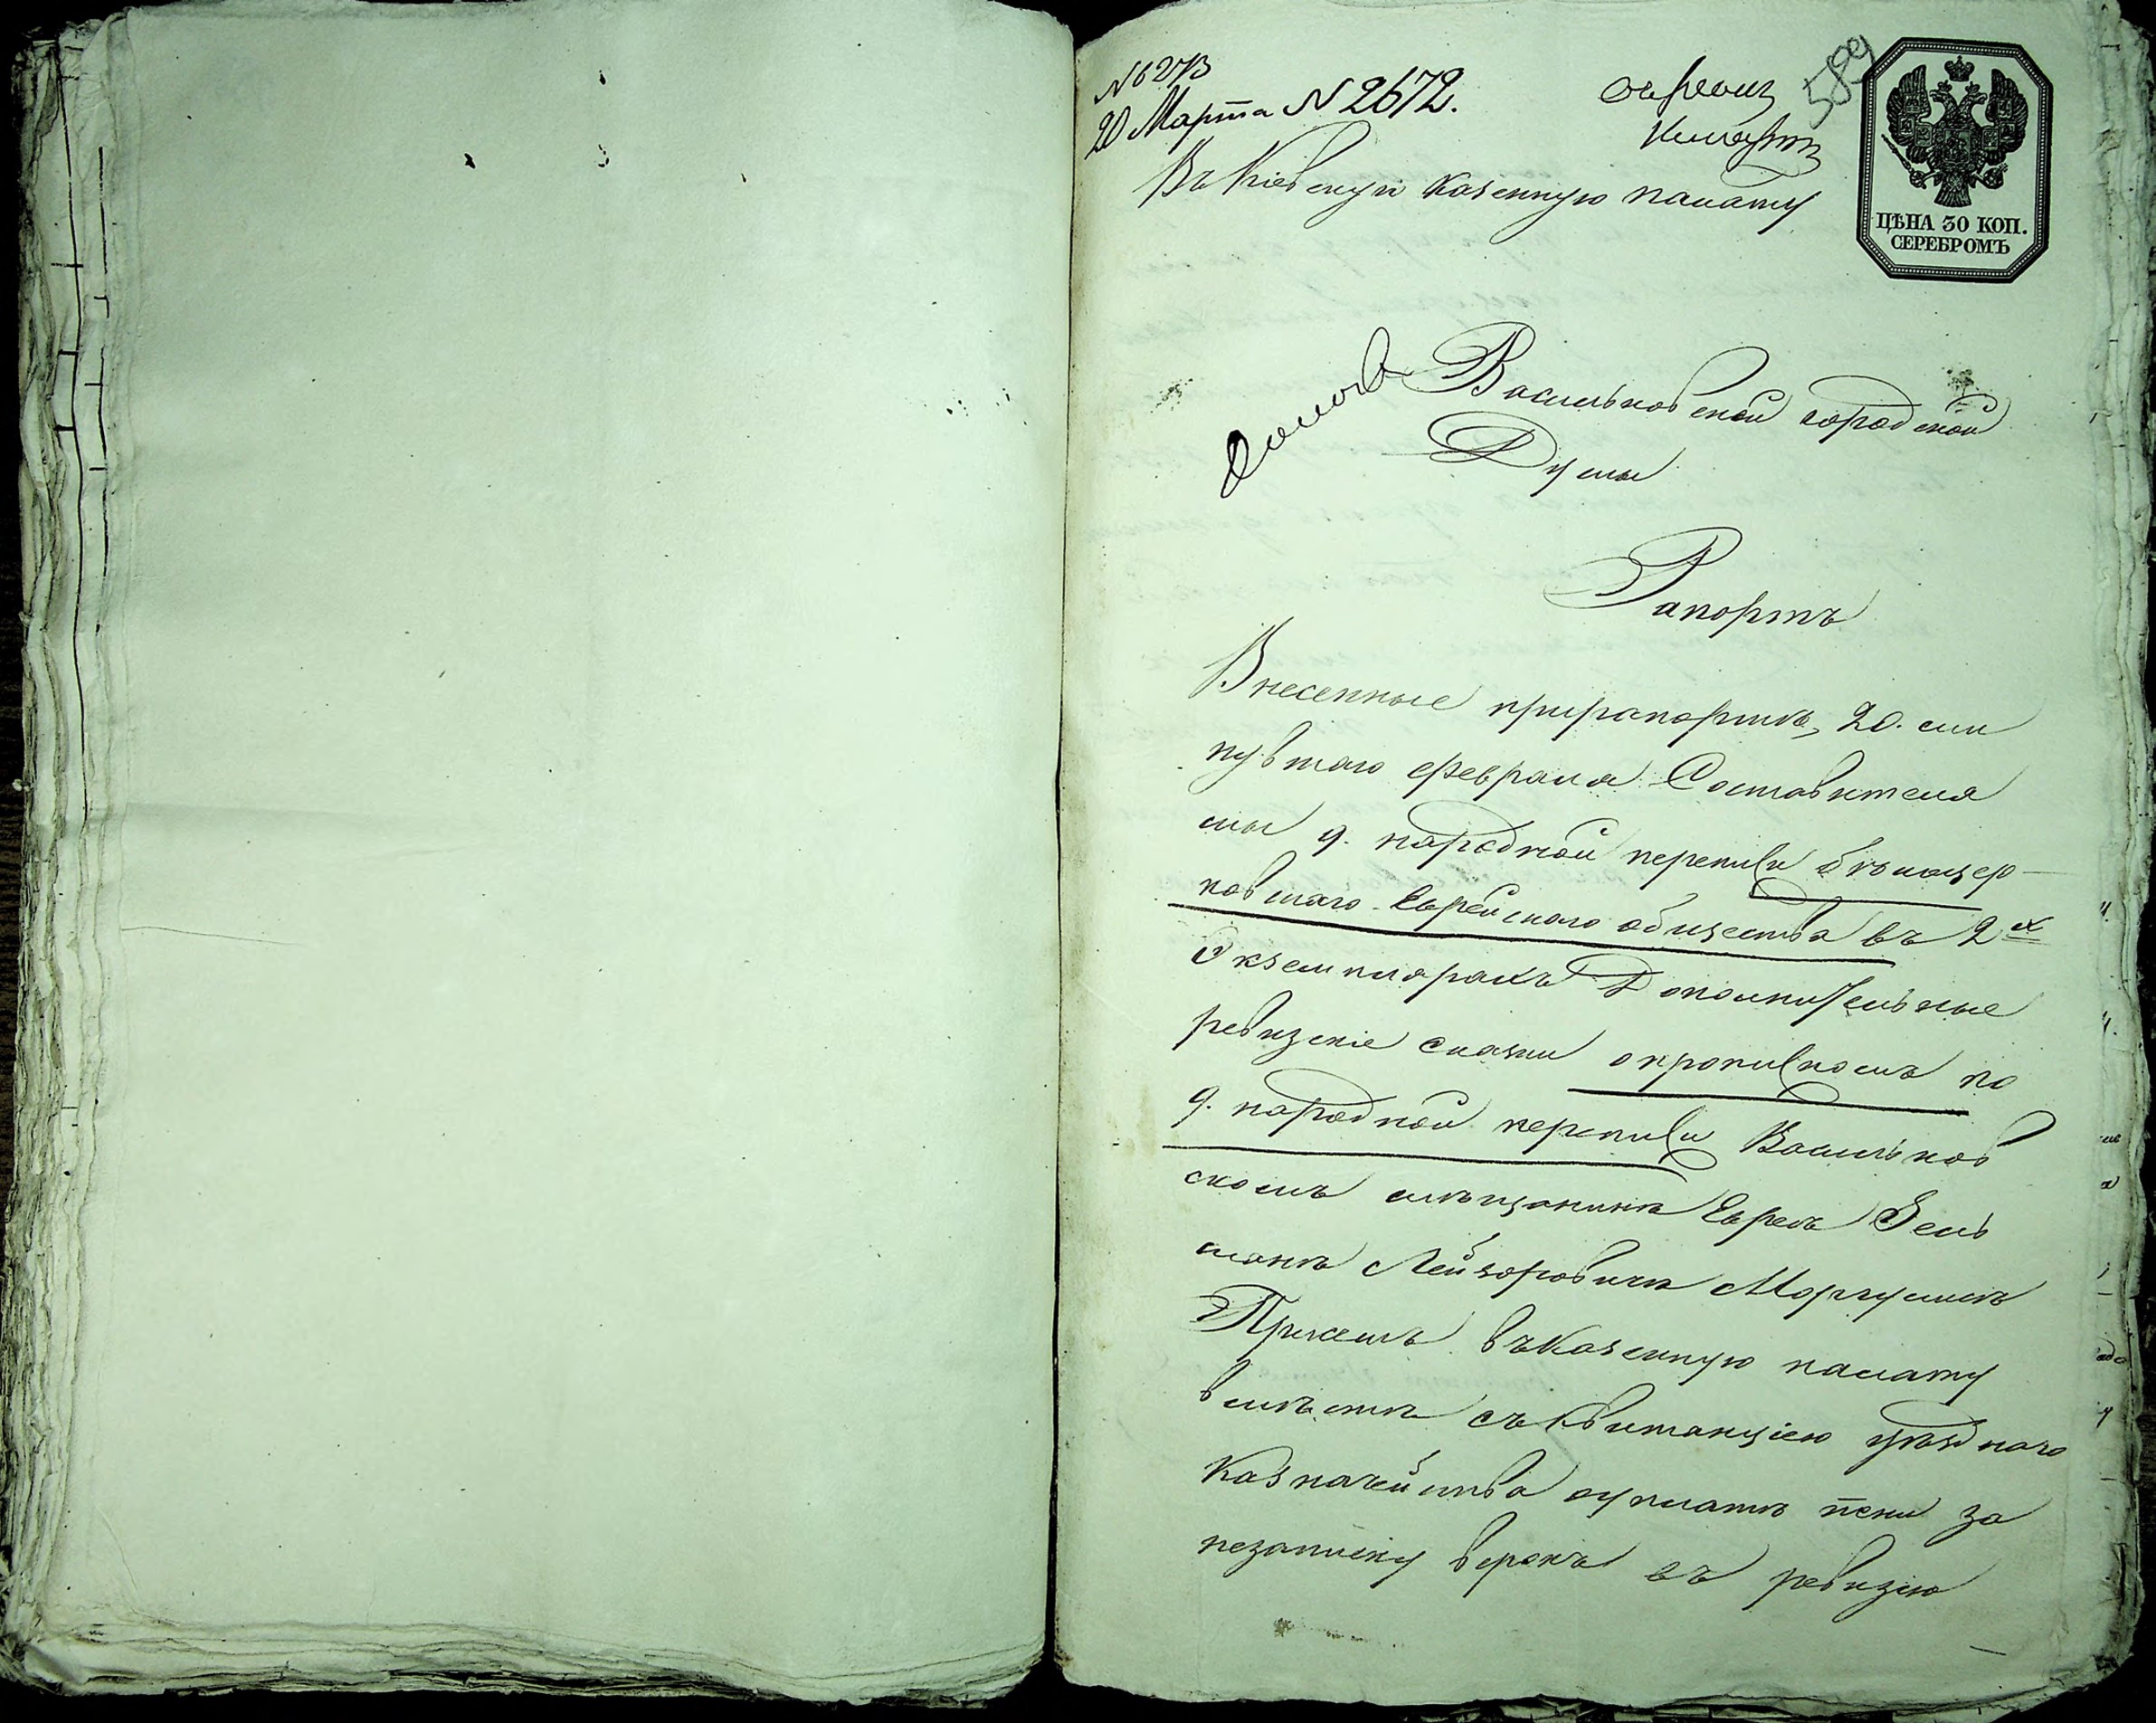 589
№ 6273
20 Марта № 2672.
Въ Кіевскую Казенную палату
ЦѢНА 30 КОП.
СЕРЕБРОМЪ
Васильковской городской
Думы
Рапортъ
Внесенные прирапортѣ, 20. ми
нувшаго февраля Составителя
ми 9. народной переписи бѣлоцер-
ковскаго Еврейскаго общества въ 2х
Экземплярахъ Дополнительные
ревизскіе сказки опрописномъ по
9. народной переписи Васильков
скомъ мѣщанинѣ Евреѣ Зель
манѣ Лейзоровичѣ Моргулисѣ
Пріемъ въ Казенную палату
вмѣстѣ съ Квитанціею уѣзднаго
Казначейства оуплатѣ пени за
незаписку всрокъ въ ревизію